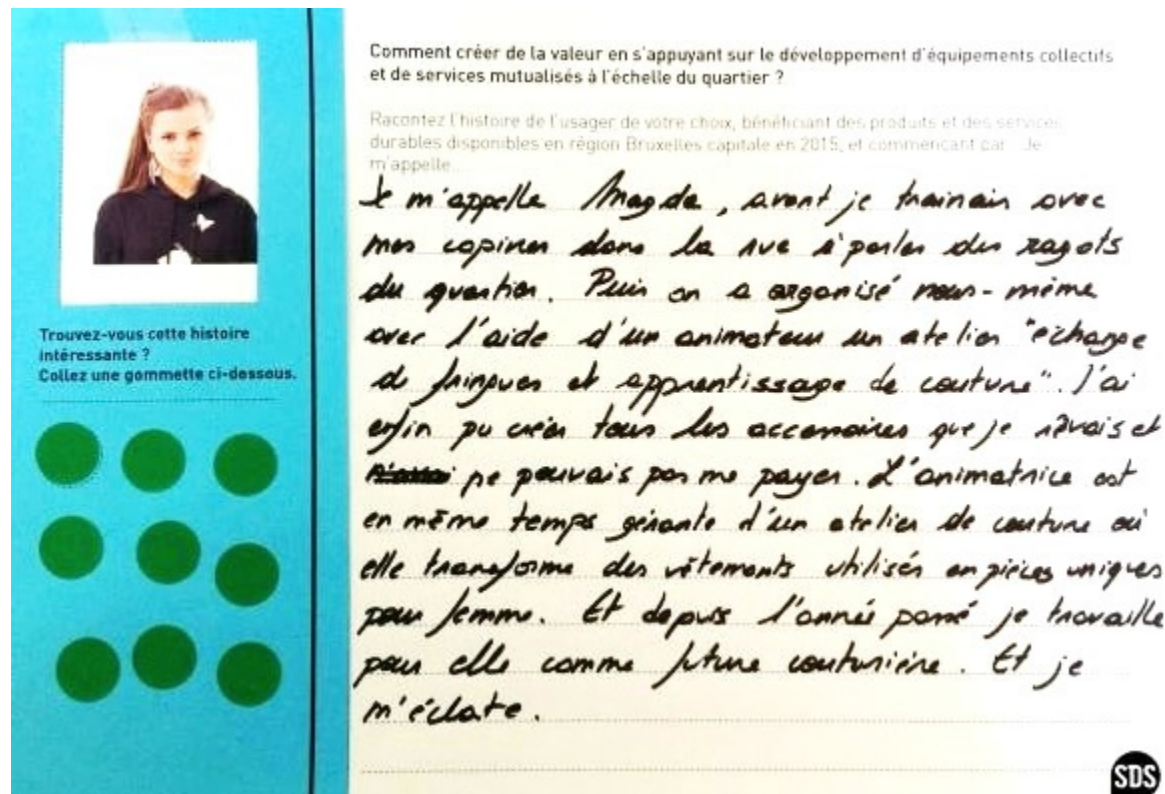 Comment créer de la valeur en s'appuyant sur le développement d'équipements collectifs
et de services mutualisés à l'échelle du quartier ?
Racontez l'histoire de l'usager de votre choix, bénéficiant des produits et des services
durables disponibles en région Bruxelles capitale en 2015, et commençant par : Je
m'appelle...
Je m'appelle Magda, avant je trainais avec
mes copines dans la rue à parler des ragots
du quartier. Puis on a organisé nous-même
avec l'aide d'un animateur un atelier "échange
de fringues et apprentissage de couture". J'ai
enfin pu créer tous les accessoires que je rêvais et
ne pouvais pas me payer. L'animatrice est
en même temps gérante d'un atelier de couture où
elle transforme des vêtements utilisés en pièces uniques
pour femme. Et depuis l'année passé je travaille
pour elle comme future couturière. Et je
m'éclate.
Trouvez-vous cette histoire
intéressante ?
Collez une gommette ci-dessous.
SDS